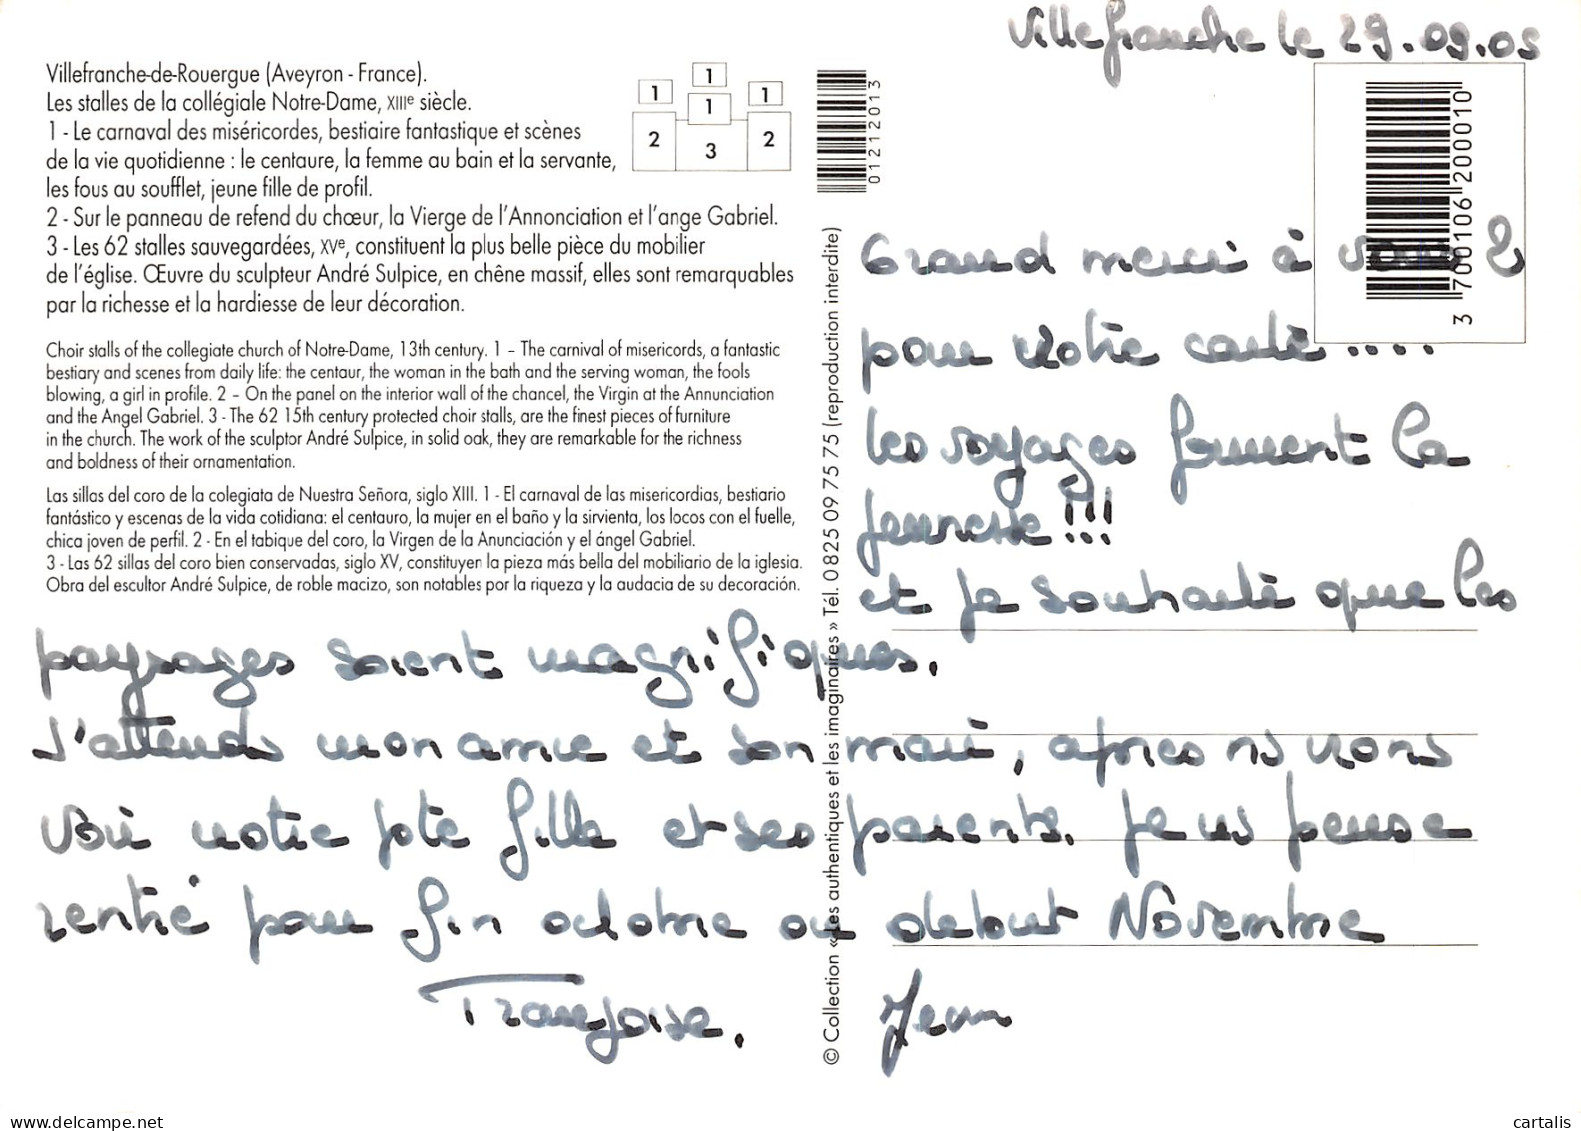 Villefranche le 29.09.05
Villefranche-de-Rouergue (Aveyron - France).
Les stalles de la collégiale Notre-Dame, XIIIe siècle.
1 - Le carnaval des miséricordes, bestiaire fantastique et scènes
de la vie quotidienne : le centaure, la femme au bain et la servante,
les fous au soufflet, jeune fille de profil.
2 - Sur le panneau de refend du chœur, la Vierge de l'Annonciation et l'ange Gabriel.
3 - Les 62 stalles sauvegardées, XVe, constituent la plus belle pièce du mobilier
de l'église. Œuvre du sculpteur André Sulpice, en chêne massif, elles sont remarquables
par la richesse et la hardiesse de leur décoration.
1
1 1 1
2 3 2
01212013
3 700106 200010
Choir stalls of the collegiate church of Notre-Dame, 13th century. 1 – The carnival of misericords, a fantastic
bestiary and scenes from daily life: the centaur, the woman in the bath and the serving woman, the fools
blowing, a girl in profile. 2 – On the panel on the interior wall of the chancel, the Virgin at the Annunciation
and the Angel Gabriel. 3 - The 62 15th century protected choir stalls, are the finest pieces of furniture
in the church. The work of the sculptor André Sulpice, in solid oak, they are remarkable for the richness
and boldness of their ornamentation.
Las sillas del coro de la colegiata de Nuestra Señora, siglo XIII. 1 - El carnaval de las misericordias, bestiario
fantástico y escenas de la vida cotidiana: el centauro, la mujer en el baño y la sirvienta, los locos con el fuelle,
chica joven de perfil. 2 - En el tabique del coro, la Virgen de la Anunciación y el ángel Gabriel.
3 - Las 62 sillas del coro bien conservadas, siglo XV, constituyen la pieza más bella del mobiliario de la iglesia.
Obra del escultor André Sulpice, de roble macizo, son notables por la riqueza y la audacia de su decoración.
© Collection « Les authentiques et les imaginaires » Tél. 0 825 09 75 75 (reproduction interdite)
Grand merci à vous 2
pour votre carte ....
les voyages forment la
jeunesse !!!
et je souhaite que les
paysages soient magnifiques.
J'attends mon amie et son mari, après ns irons
voir notre pte fille et ses parents. Je ns pense
rentré pour fin octobre ou debut Novembre
Françoise. Jean
cartalis
www.delcampe.net